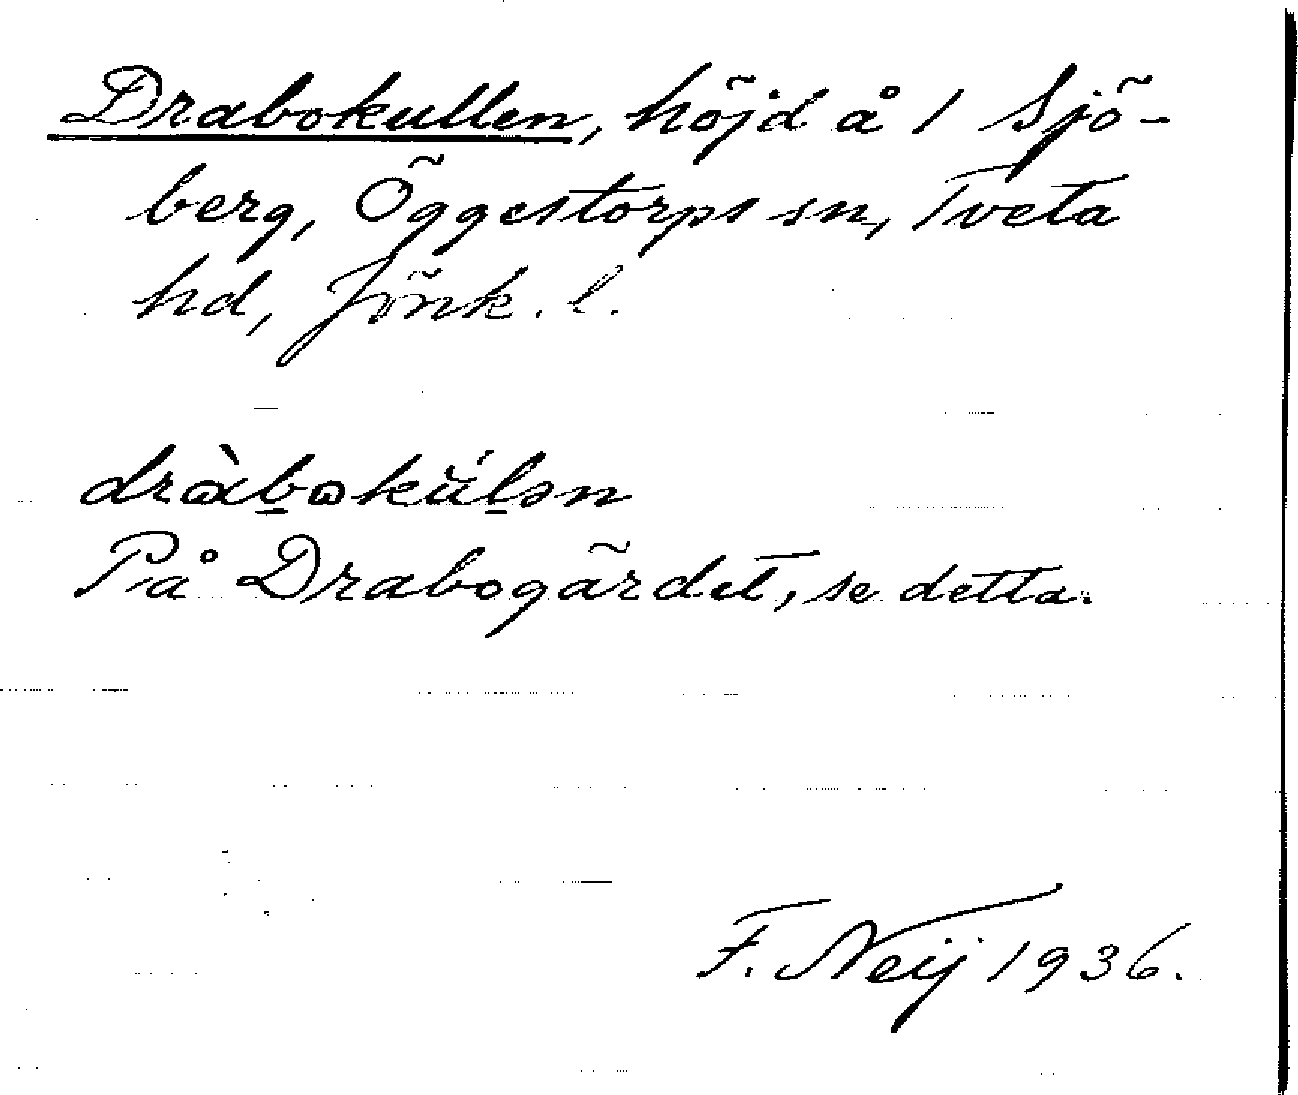 Drabokullen, höjd å 1 Sjö-
berg, Öggestorps sn, Tveta
hd, Jönk. l.
dràbokúlən
På Drabogärdet, se detta.
F. Neij 1936.